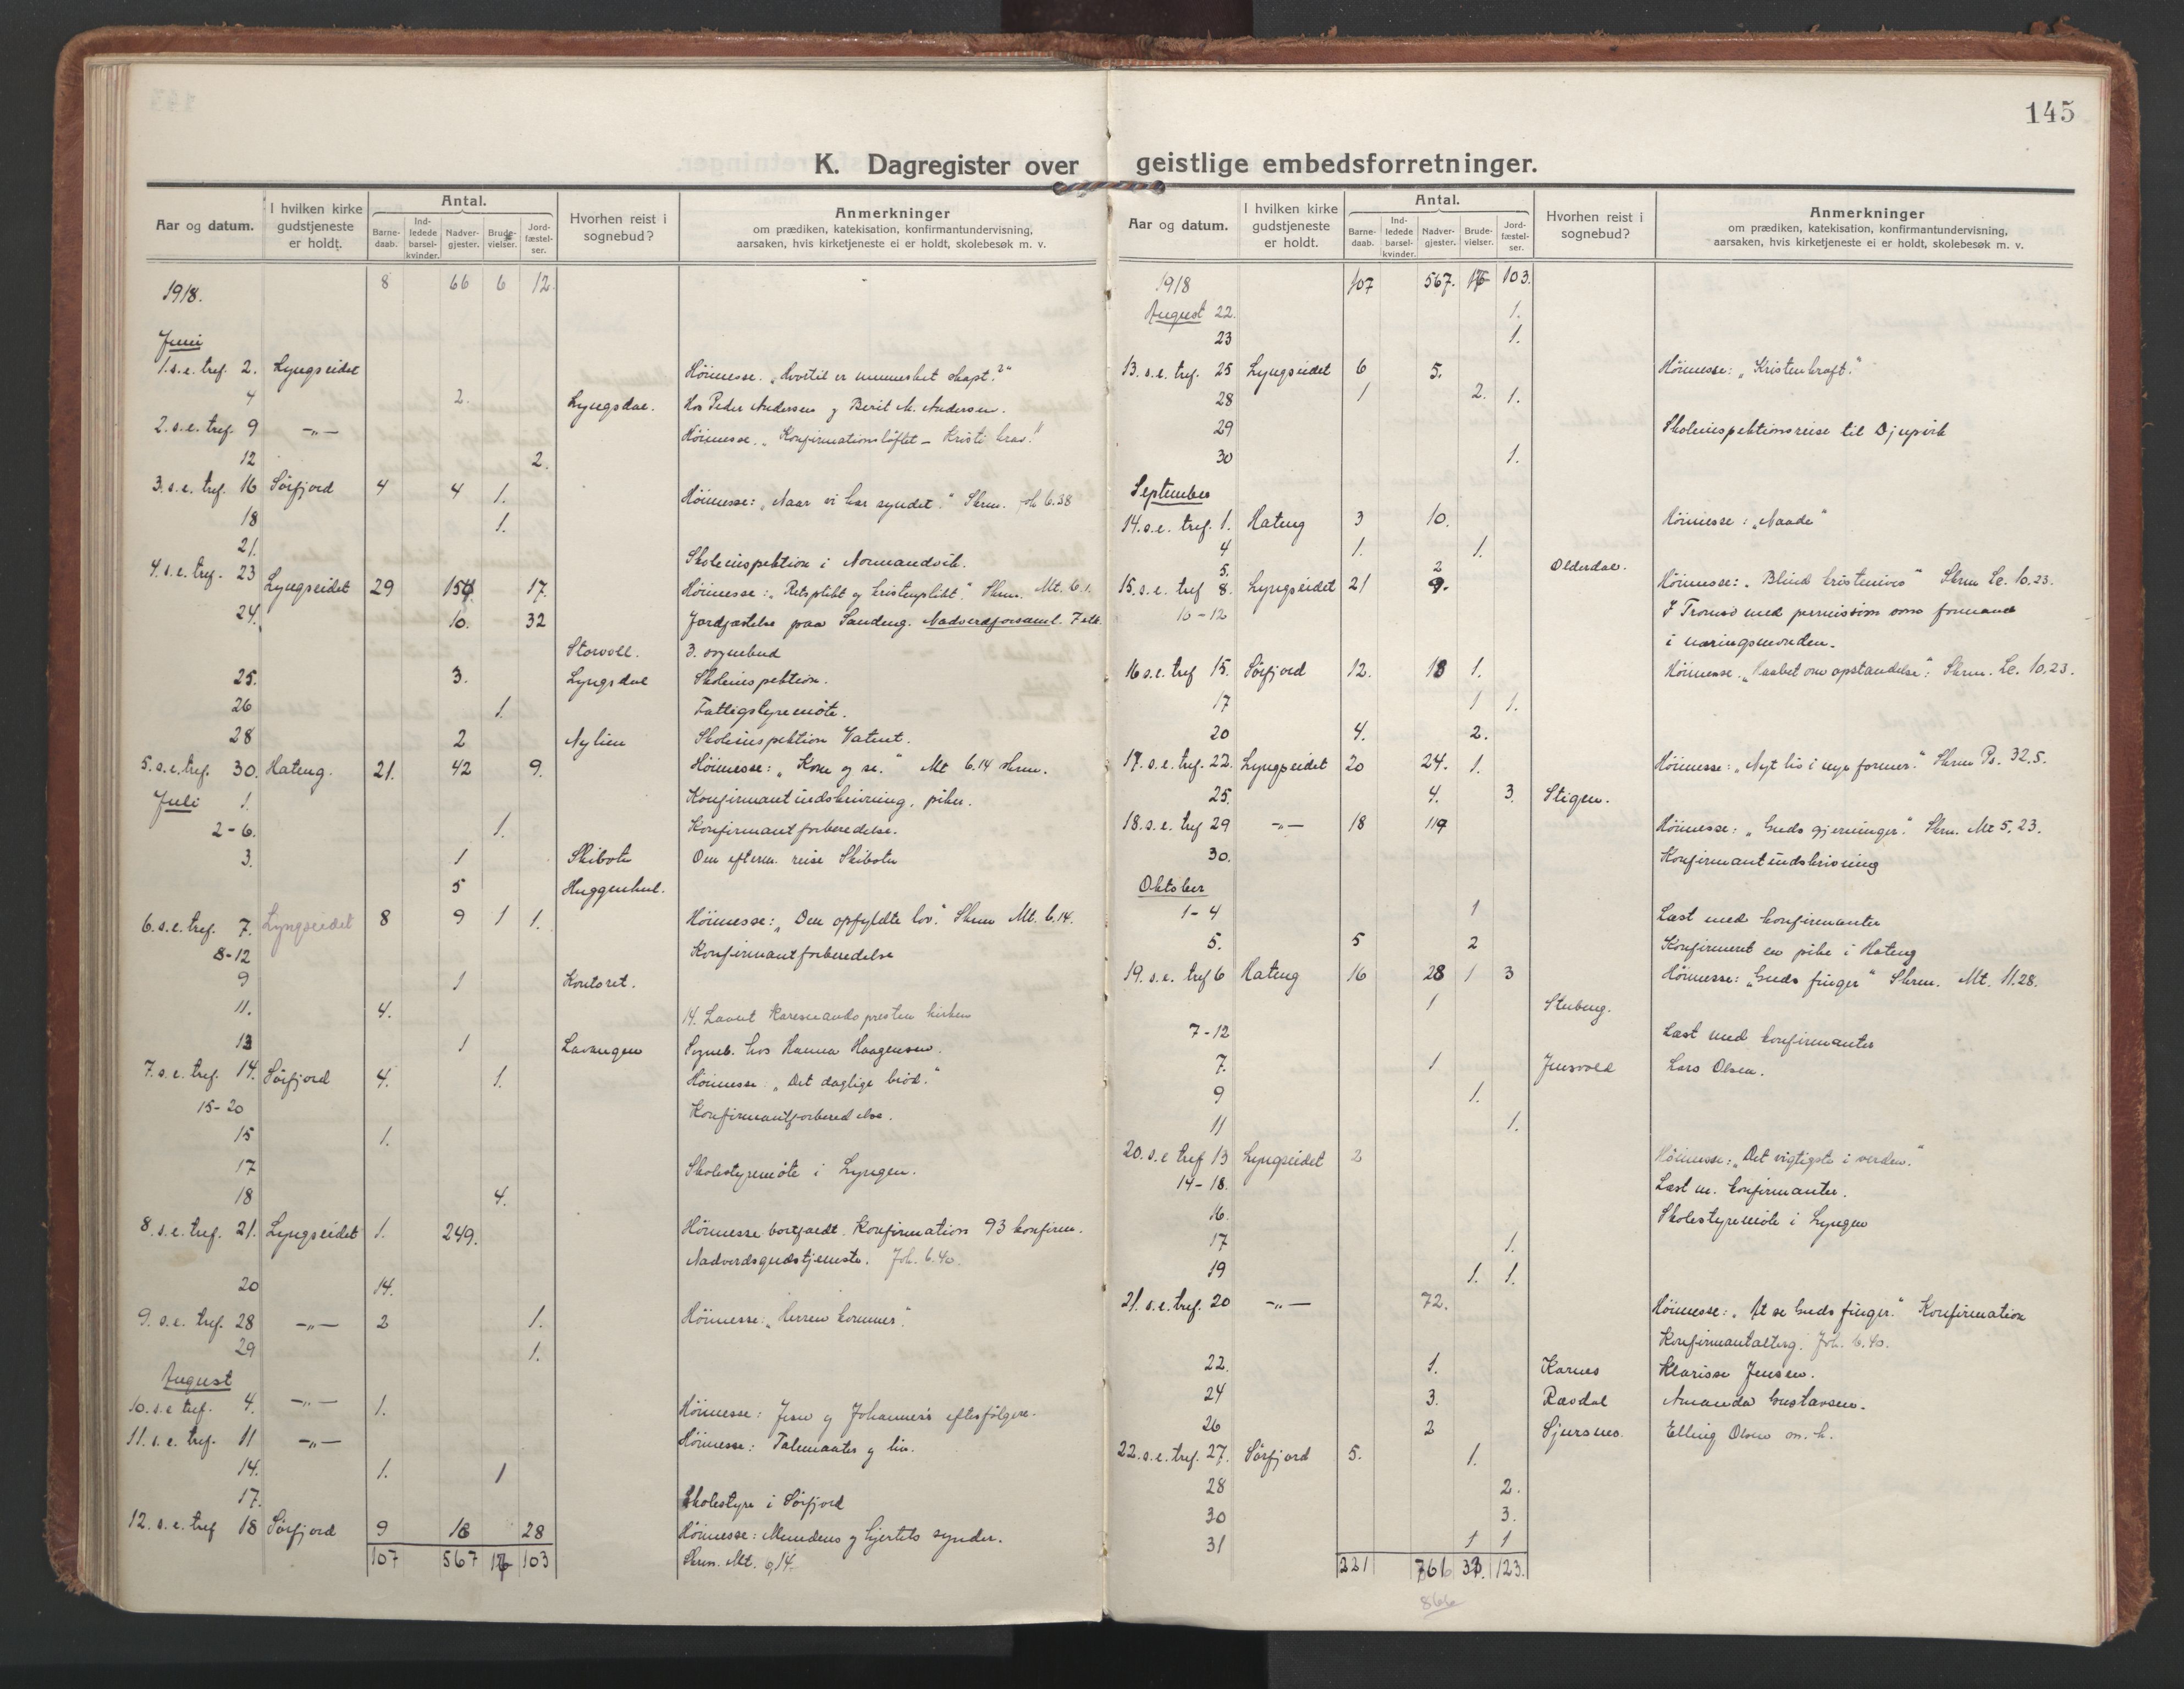 145
K. Dagregister over geistlige embedsforretninger.
Aar og datum. I hvilken kirke gudstjeneste er holdt. Antal. Barnedaab. Indledede barselkvinder. Nadvergjester. Brudevielser. Jordfæstelser. Hvorhen reist i sognebud? Anmerkninger om prædiken, katekisation, konfirmantundervisning, aarsaken, hvis kirketjeneste ei er holdt, skolebesøk m. v.
1918. 8 66 6 12
Juni
1. s.e. tref. 2. Lyngseidet Höimesse. "Hvortil er mennesket skapt?"
4 2. Lyngsdal. Hos Peder Andersen og Berit M. Andersen.
2. s.e. tref. 9 -"- Höimesse. "Konfirmationslöftet - Kristi krav."
12 2.
3. s.e. tref. 16 Sörfjord 4 4 1. Höimesse: "Naar vi har syndet." Skrm. Joh 6.38
18 1.
21. Skoleinspektion i Normandvik.
4. s.e. tref. 23 Lyngseidet 29 154 17. Höimesse: "Retsplikt og kristenplikt." Skrm. Mt. 6.1.
24. 10. 32 Jordfæstelse paa Sandeng. Nadverdforsaml.
Storvoll. 3. sognebud
25. 3. Lyngsdal Skoleinspektion.
26 1. Fattigstyremöte.
28 2 Nylien Skoleinspektion Vatnet.
5. s.e. tref. 30. Hateng. 21. 42 9. Höimesse: "Kom og se." Mt 6.14 skrm.
Juli 1. Konfirmantindskrivning, piker.
2-6. 1. Konfirmantforberedelse.
3. 1 Skibotn Om efterm. reise Skibotn
5 Huggenhul.
6. s.e. tref. 7. Lyngseidet 8 9 1 1. Höimesse: "Den opfyldte lov." Skrm Mt. 6.14.
8-12 Konfirmantforberedelse
9 1 Kontoret.
11. 4. 14. Lavet Karesuandopresten kirken
13 1 Lavangen Sogneb. hos Hanna Haagensen.
7. s.e. tref. 14. Sörfjord 4. 1. Höimesse: "Det daglige bröd."
15-20 Konfirmantforberedelse.
15 1.
17 Skolestyremöte i Lyngen.
18 4.
8. s.e. tref. 21. Lyngseidet 1. 249. Höimesse bortfaldt. Konfirmation 93 konfirm.
Nadverdsgudstjeneste. Joh. 6.40.
20 14.
9. s.e. tref. 28 -"- 2 1. Höimesse: "Herren kommer".
29 1.
August
10. s.e. tref. 4. -"- 1. Höimesse: Jesu og Johannes's efterfölgere.
11. s.e. tref. 11 -"- Höimesse: Talemaater og liv.
14. 1. 1
17. Skolestyre i Sörfjord
12. s.e. tref 18 Sörfjord 9 16 28 Höimesse: Mundens og hjertets synder.
107 567 16 103 Skrm. Mt. 6,14.
Aar og datum. I hvilken kirke gudstjeneste er holdt. Antal. Barnedaab. Indledede barselkvinder. Nadvergjester. Brudevielser. Jordfæstelser. Hvorhen reist i sognebud? Anmerkninger om prædiken, katekisation, konfirmantundervisning, aarsaken, hvis kirketjeneste ei er holdt, skolebesøk m. v.
1918 107 567. 16 103.
August 22. 1.
23 1.
13. s.e. tref. 25 Lyngseidet 6 5. Höimesse: "Kristenkraft."
28 1 2. 1.
29 Skoleinspektionsreise til Djupvik
30 1.
September
14. s.e. tref. 1. Hateng 3 10. Höimesse: "Naade"
4 1. 1.
5. 2 Olderdal.
15. s.e. tref 8. Lyngseidet 21 9. Höimesse: "Blind kristenivér" Skrm Lc. 10,23.
10-12 I Tromsö med permission som formand
i næringsnevnden.
16 s.e. tref 15. Sörfjord 12. 18 1. Höimesse. "Haabet om opstandelse": Skrm. Lc. 10,23.
17 1 1.
20 4. 2.
17. s.e. tref. 22. Lyngseidet 20 24. 1. Höimesse: "Nyt liv i nye former." Skrm Ps. 32,5.
25. 4. 3. Stigen.
18. s.e. tref 29 -"- 18 119 Höimesse: "Guds gjerninger." Skrm. Mt 5,23.
30. Konfirmantindskrivning
Oktober
1-4 1 Læst med konfirmanter
5. 5 2 Konfirmert en pike i Hateng
19. s.e. tref 6 Hateng 16 28 1 3 Höimesse: "Guds finger" Skrm. Mt. 11.28.
1 Stubeng.
7-12 Læst med konfirmanter
7. 1 Jensvold Lars Olsen.
9 1.
11 1.
20. s.e tref 13 Lyngseidet 2 Höimesse: "Det vigtigste i verden."
14-18. Læst m. konfirmanter.
16. Skolestyremöte i Lyngen
17 1.
19 1. 1.
21. s.e. tref. 20 -"- 72. Höimesse: "At se Guds finger." Konfirmation
Konfirmantalterg. Joh. 6.40.
22. 1. Karnes Klarisse Jensen.
24 3. Rasdal Amanda Gustavsen.
26 2 Sjursnes. Elling Olsen m. h.
22. s.e. tref. 27. Sörfjord 5. 1.
28 2.
30 3.
31 1 1
221 761 33. 123.
866